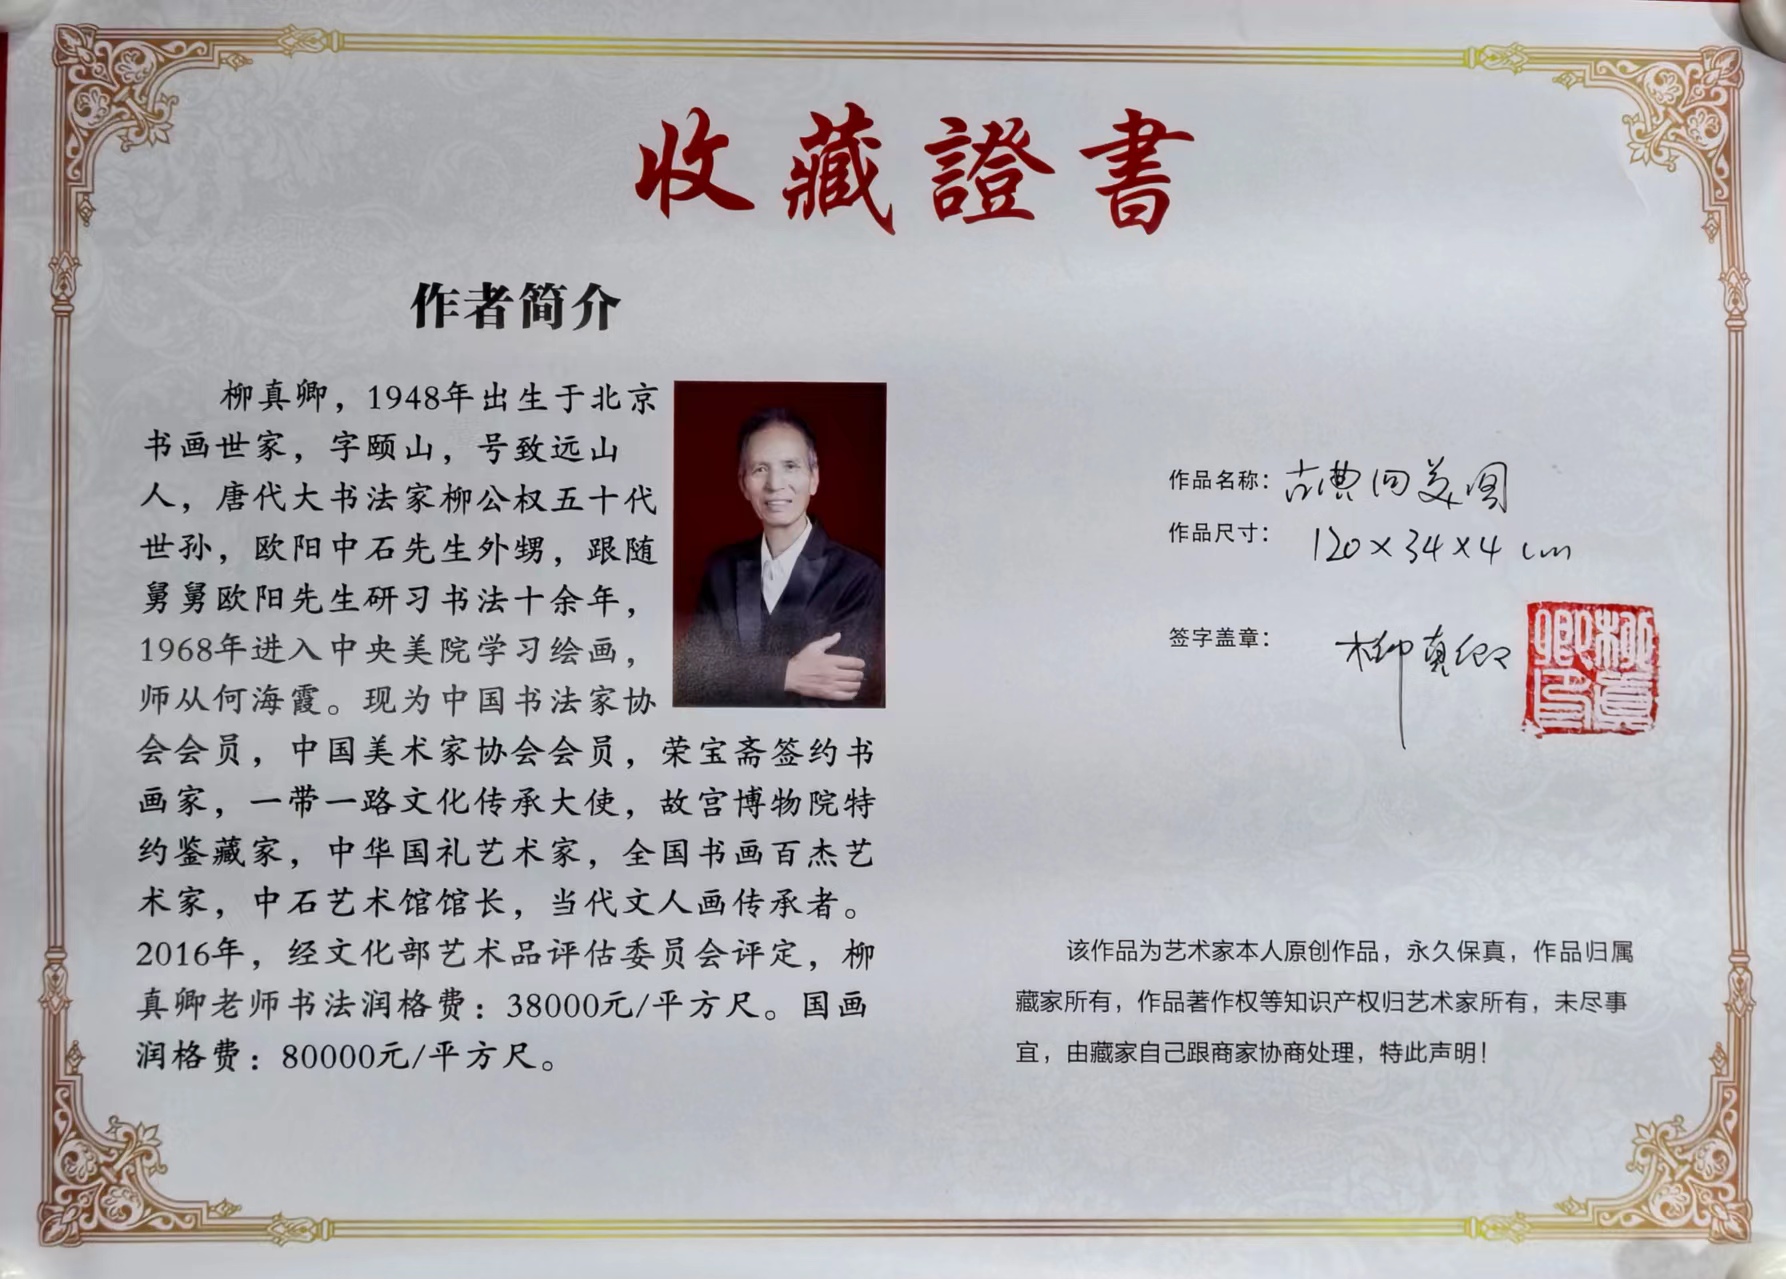 收藏證書
作者简介
柳真卿，1948年出生于北京
书画世家，字颐山，号致远山
人，唐代大书法家柳公权五十代
世孙，欧阳中石先生外甥，跟随
舅舅欧阳先生研习书法十余年，
1968年进入中央美院学习绘画，
师从何海霞。现为中国书法家协
会会员，中国美术家协会会员，荣宝斋签约书
画家，一带一路文化传承大使，故宫博物院特
约鉴藏家，中华国礼艺术家，全国书画百杰艺
术家，中石艺术馆馆长，当代文人画传承者。
2016年，经文化部艺术品评估委员会评定，柳
真卿老师书法润格费：38000元/平方尺。国画
润格费：80000元/平方尺。
作品名称：古典四美图
作品尺寸：120×34×4 cm
签字盖章：柳真卿
柳真卿印
该作品为艺术家本人原创作品，永久保真，作品归属
藏家所有，作品著作权等知识产权归艺术家所有，未尽事
宜，由藏家自己跟商家协商处理，特此声明！